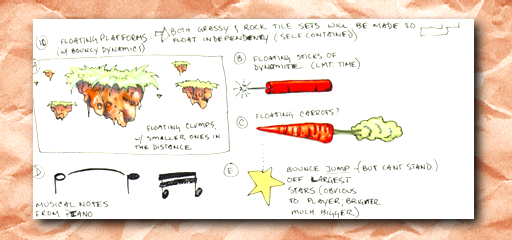 10 FLOATING PLATFORMS
(W/ BOUNCY DYNAMICS)
BOTH GRASSY & ROCK TILE SETS WILL BE MADE TO
FLOAT INDEPENDENTLY (SELF CONTAINED)
FLOATING CLUMPS,
W/ SMALLER ONES IN
THE DISTANCE.
B FLOATING STICKS OF
DYNAMITE. (LMT. TIME)
C FLOATING CARROTS?
D
MUSICAL NOTES
FROM PIANO
E BOUNCE JUMP (BUT CANT STAND)
OFF LARGEST
STARS (OBVIOUS
TO PLAYER, BRIGHTER
MUCH BIGGER)